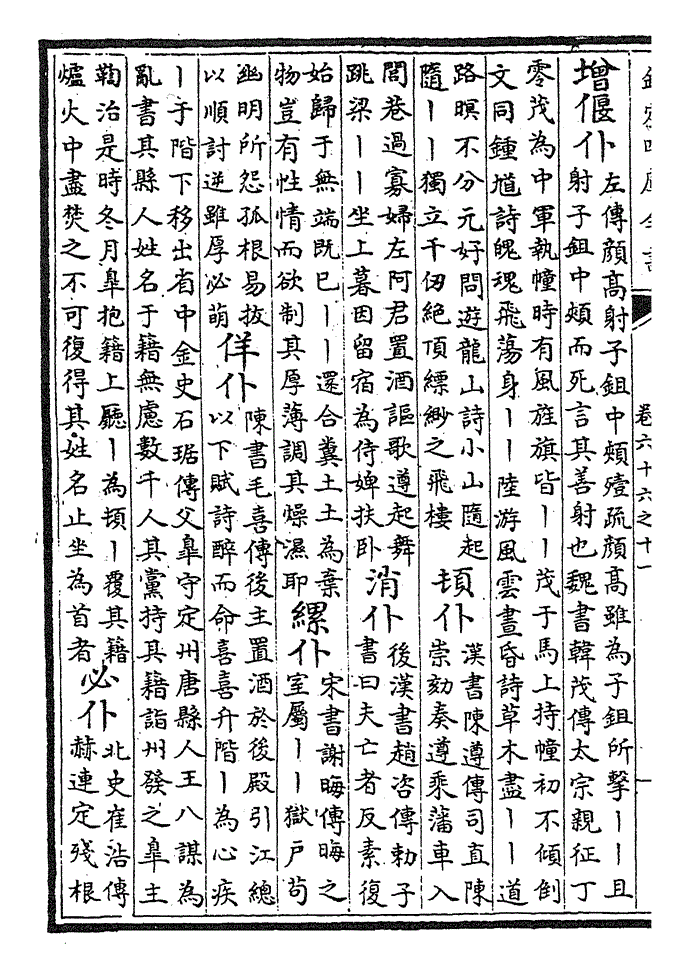 欽定四庫全書
卷六十六之十一
一
增偃仆
左傳顏高射子鉏中頰殪疏顏高雖為子鉏所擊丨丨且
射子鉏中頰而死言其善射也魏書韓茂傳太宗親征丁
零茂為中軍執幢時有風旌旗皆丨丨茂于馬上持幢初不傾倒
文同鍾馗詩魄魂飛蕩身丨丨陸游風雲晝昏詩草木盡丨丨道
路暝不分元好問遊龍山詩小山隨起
隨丨丨獨立千仞絕頂縹緲之飛樓
頓仆
漢書陳遵傳司直陳
崇劾奏遵乘藩車入
閭巷過寡婦左阿君置酒謳歌遵起舞
跳梁丨丨坐上暮因留宿為侍婢扶臥
消仆
後漢書趙咨傳勅子
書曰夫亡者反素復
始歸于無端既已丨丨還合糞土土為棄
物豈有性情而欲制其厚薄調其燥濕耶
縲仆
宋書謝晦傳晦之
室屬丨丨獄户苟
幽明所怨孤根易拔
以順討逆雖厚必萌
佯仆
陳書毛喜傳後主置酒於後殿引江總
以下賦詩醉而命喜喜升階丨為心疾
丨于階下移出省中金史石琚傳父臯守定州唐縣人王八謀為
亂書其縣人姓名于籍無慮數千人其黨持其籍詣州發之臯主
鞫治是時冬月臯抱籍上廳丨為頓丨覆其籍
爐火中盡焚之不可復得其姓名止坐為首者
必仆
北史崔浩傳
赫連定殘根